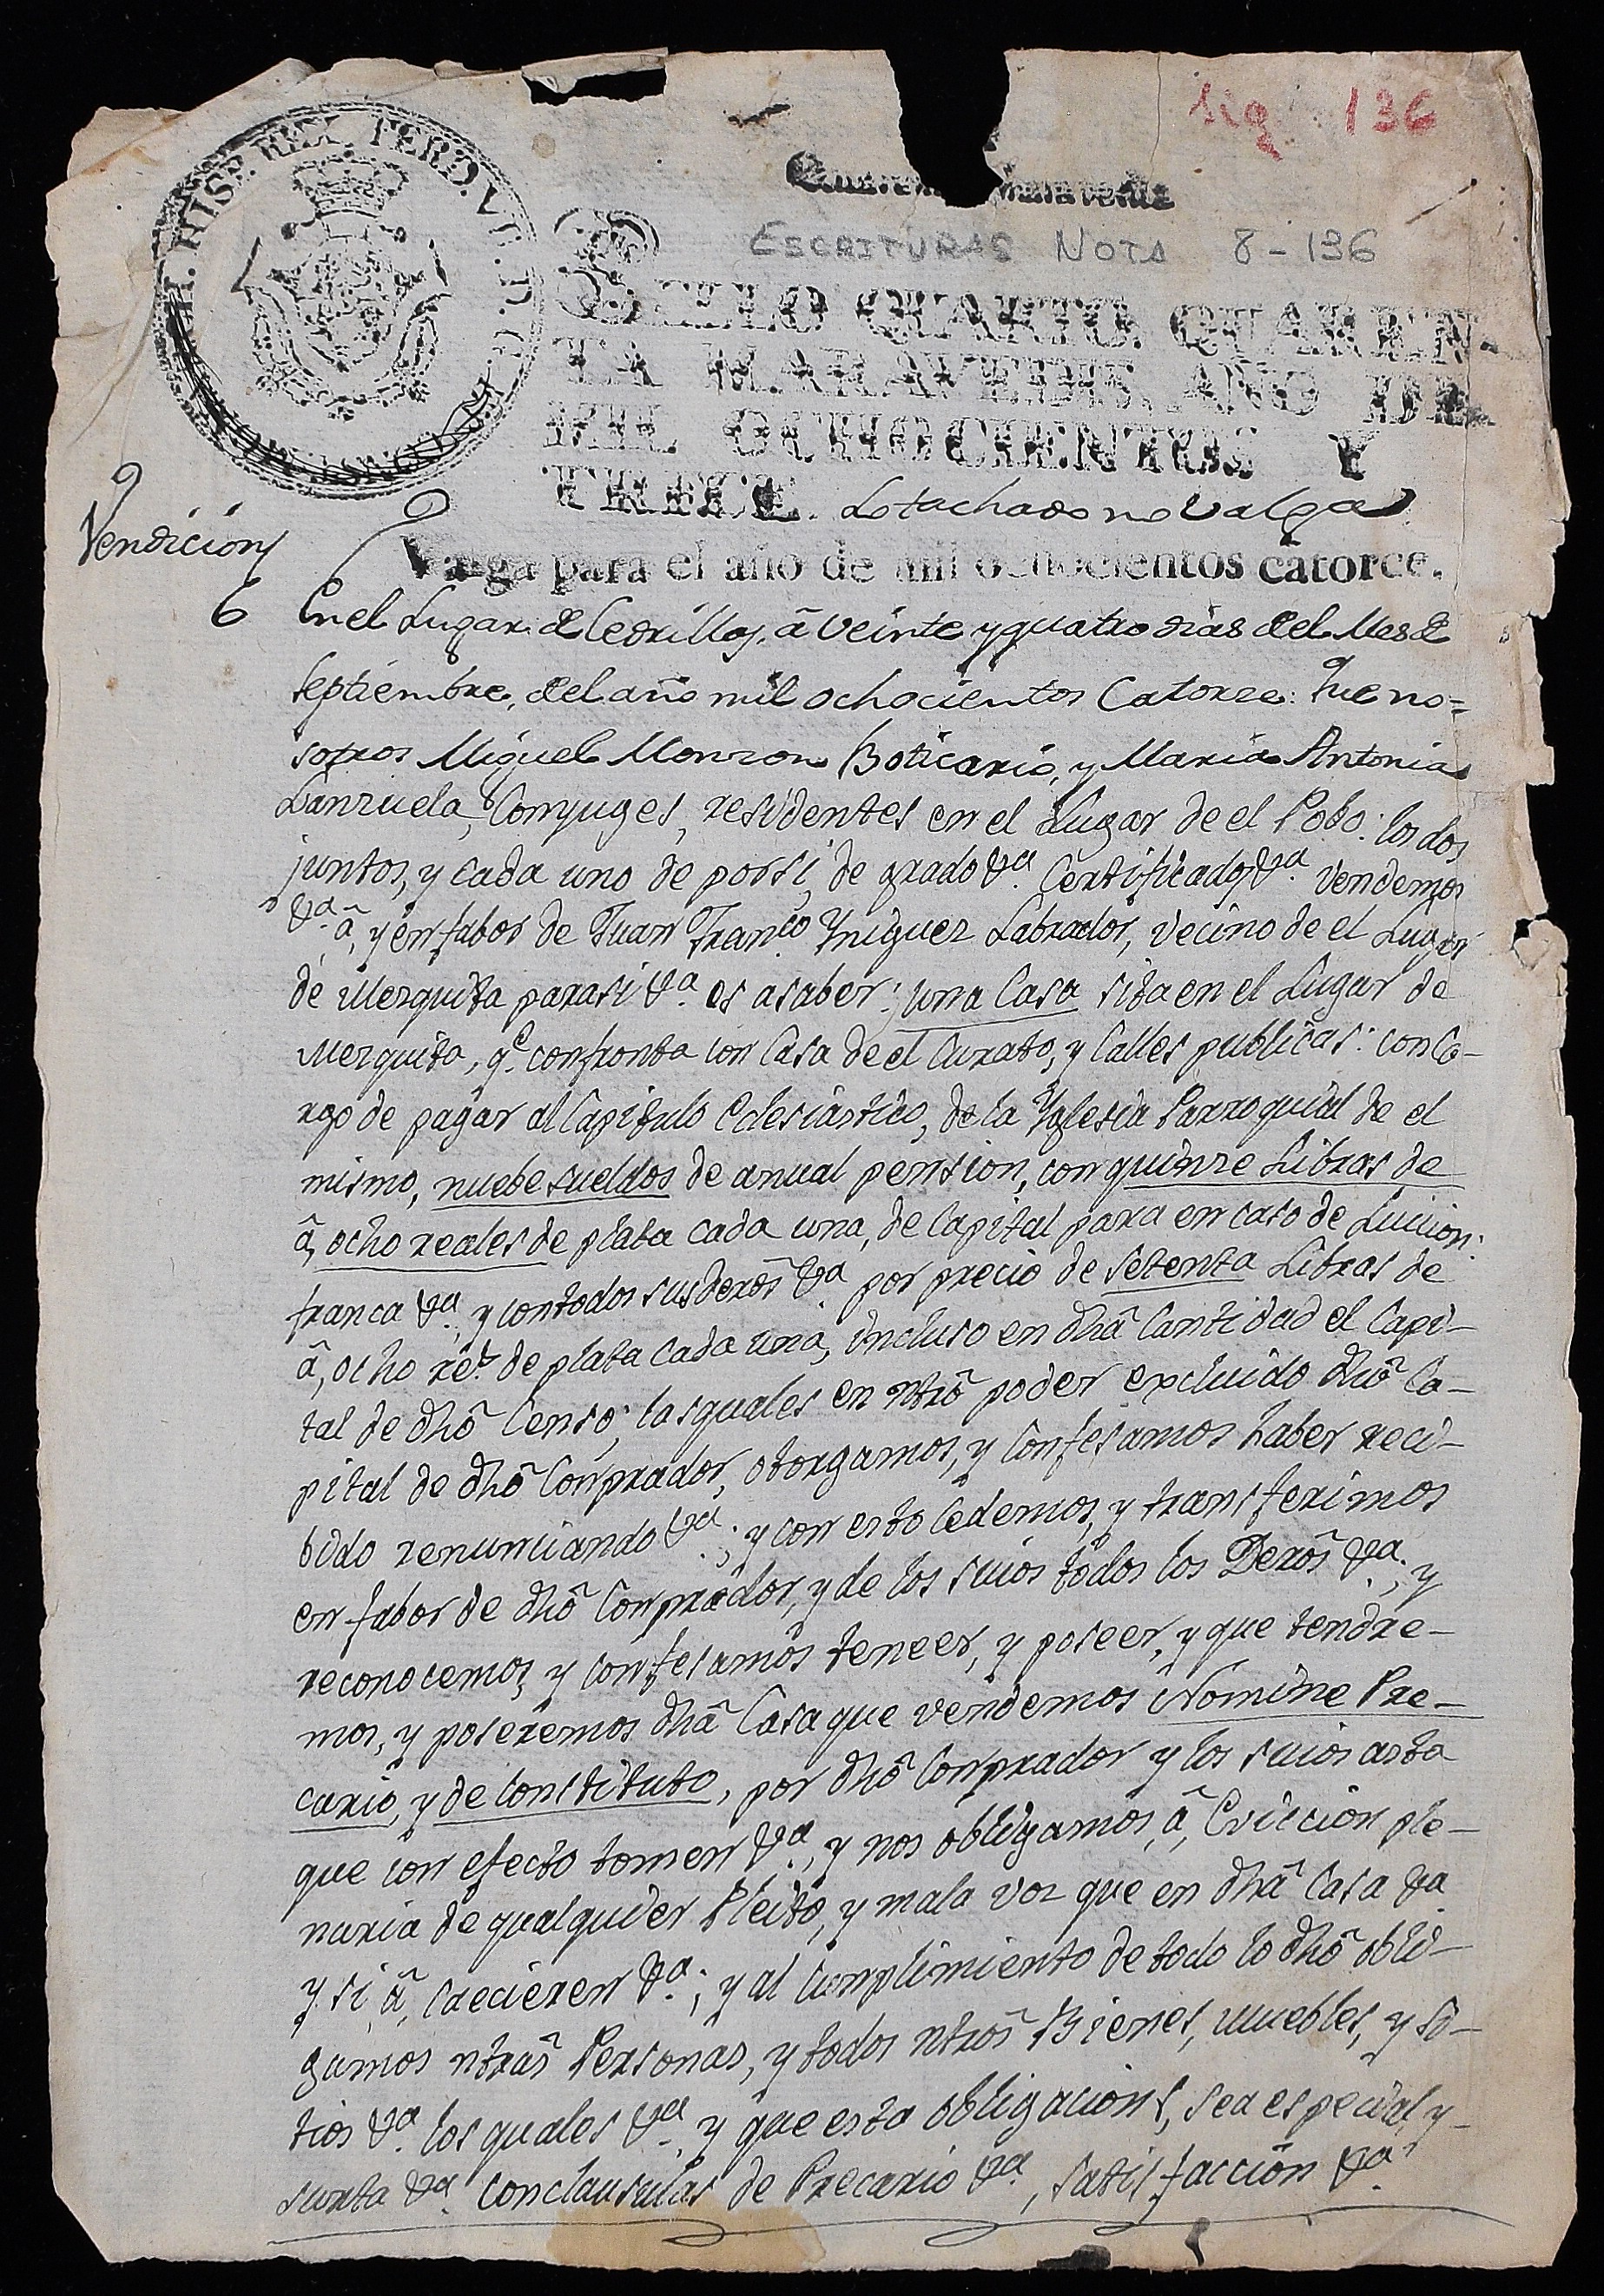 sig 136
HISP. REX. FERD. VII. D. G.
Quarenta maravedis
ESCRITURAS NOTA 8-136
SELLO QUARTO, QUAREN-
TA MARAVEDIS, AÑO DE
MIL OCHOCIENTOS Y
TRECE. Lo tachado no valga
Vendicion
Valga para el año de mil ochocientos catorce.
6 En el Lugar de Cedrillas, â veinte y quatro dias del Mes de
Septiembre, del año mil ochocientos Catorze: Que no=
sotros Miguel Monzon Boticario, y Maria Antonia
Lanzuela, Conyuges, residentes en el Lugar de el Pobo: los dos
juntos, y cada uno de por si, de grado &a. Certificados &a. vendemos
&a. â, y en fabor de Juan Franco Yñiguez Labrador, vecino de el Lugar
de Mezquita para si &a. es a saber: una Casa sita en el Lugar de
Mezquita, qe. confronta con Casa de el Curato, y Calles publicas: con Ca-
rgo de pagar al Capitulo Eclesiastico, de la Yglesia Parroquial de el
mismo, nuebe sueldos de anual pension, con quinze Libras de
â, ocho reales de plata cada una, de Capital para en caso de Luicion:
franca &a., y con todos sus derōs &a. por precio de setenta Libras de
â, ocho res. de plata cada una, incluso en dhā Cantidad el Capi-
tal de dhō Censo; las quales en ntrō poder excluido dhō Ca-
pital de dhō Comprador, otorgamos, y confesamos haber reci-
bido renunciando &a.; y con esto Cedemos, y transferimos
en fabor de dhō Comprador, y de los suios todos los Derōs &a.; y
reconocemos, y confesamos teneer, y poseer, y que tendre-
mos, y poseremos dhā Casa que vendemos Nomine Pre-
cario, y de Constituto, por dhō Comprador y los suios asta
que con efecto tomen &a., y nos obligamos â, Eviccion ple-
naria de qualquier Pleito, y mala voz que en dhā Casa &a
y si â, Caecieren &a.; y al cumplimiento de todo lo dhō obli-
gamos ntrās Personas, y todos ntrōs Bienes, muebles, y si-
tios &a. los quales &a., y que esta obligacion, sea especial, y
surta &a. con clausulas de Precario &a., satisfaccion &a.